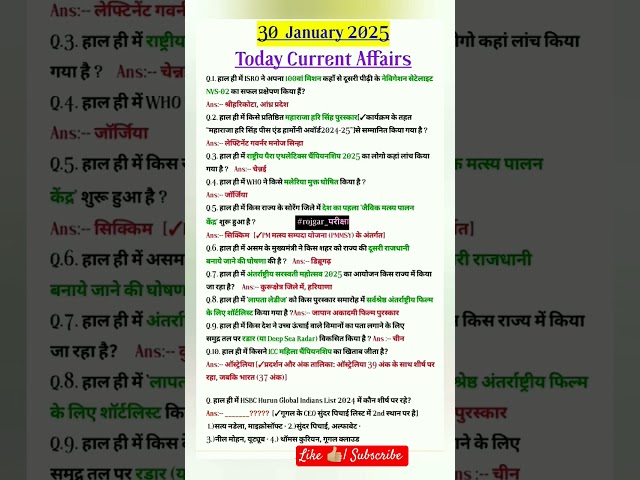 30 January 2025
Today Current Affairs
Q.1. हाल ही में ISRO ने अपना 100वां मिशन कहाँ से दूसरी पीढ़ी के नेविगेशन सेटेलाइट
NVS-02 का सफल प्रक्षेपण किया हैं?
Ans:- श्रीहरिकोटा, आंध्र प्रदेश
Q.2. हाल ही में किसे प्रतिष्ठित महाराजा हरि सिंह पुरस्कार[✓कार्यक्रम के तहत
"महाराजा हरि सिंह पीस एंड हार्मोनी अवॉर्ड2024-25"]से सम्मानित किया गया है ?
Ans:-- लेफ्टिनेंट गवर्नर मनोज सिन्हा
Q.3. हाल ही में राष्ट्रीय पैरा एथलेटिक्स चैंपियनशिप 2025 का लोगो कहां लांच किया
गया है ? Ans:-- चेन्नई
Q.4. हाल ही में WHO ने किसे मलेरिया मुक्त घोषित किया है ?
Ans:-- जॉर्जिया
Q.5. हाल ही में किस राज्य के सोरेंग जिले में देश का पहला 'जैविक मत्स्य पालन
केंद्र' शुरू हुआ है ?
#rojgar_परीक्षा
Ans:-- सिक्किम [✓PM मत्स्य सम्पदा योजना (PMMSY) के अंतर्गत]
Q.6. हाल ही में असम के मुख्यमंत्री ने किस शहर को राज्य की दूसरी राजधानी
बनाये जाने की घोषणा की है ? Ans:-- डिब्रूगढ़
Q.7. हाल ही में अंतर्राष्ट्रीय सरस्वती महोत्सव 2025 का आयोजन किस राज्य में किया
जा रहा है? Ans:-- कुरूक्षेत्र जिले में, हरियाणा
Q.8. हाल ही में 'लापता लेडीज' को किस पुरस्कार समारोह में सर्वश्रेष्ठ अंतर्राष्ट्रीय फिल्म
के लिए शॉर्टलिस्ट किया गया है ?Ans:-- जापान अकादमी फिल्म पुरस्कार
Q.9. हाल ही में किस देश ने उच्च ऊंचाई वाले विमानों का पता लगाने के लिए
समुद्र तल पर रडार (या Deep Sea Radar) विकसित किया है ? Ans :-- चीन
Q.10. हाल ही में किसने ICC महिला चैंपियनशिप का खिताब जीता है?
Ans:-- ऑस्ट्रेलिया [✓प्रदर्शन और अंक तालिका: ऑस्ट्रेलिया 39 अंक के साथ शीर्ष पर
रहा, जबकि भारत (37 अंक)]
Q. हाल ही में HSBC Hurun Global Indians List 2024 में कौन शीर्ष पर रहे?
Ans:-- _______????? [✓गूगल के CEO सुंदर पिचाई लिस्ट में 2nd स्थान पर है]
1.)सत्य नडेला, माइक्रोसॉफ्ट · 2.)सुंदर पिचाई, अल्फाबेट ·
3.)नील मोहन, यूट्यूब · 4.) थॉमस कुरियन, गूगल क्लाउड
Like 👍🏼/ Subscribe